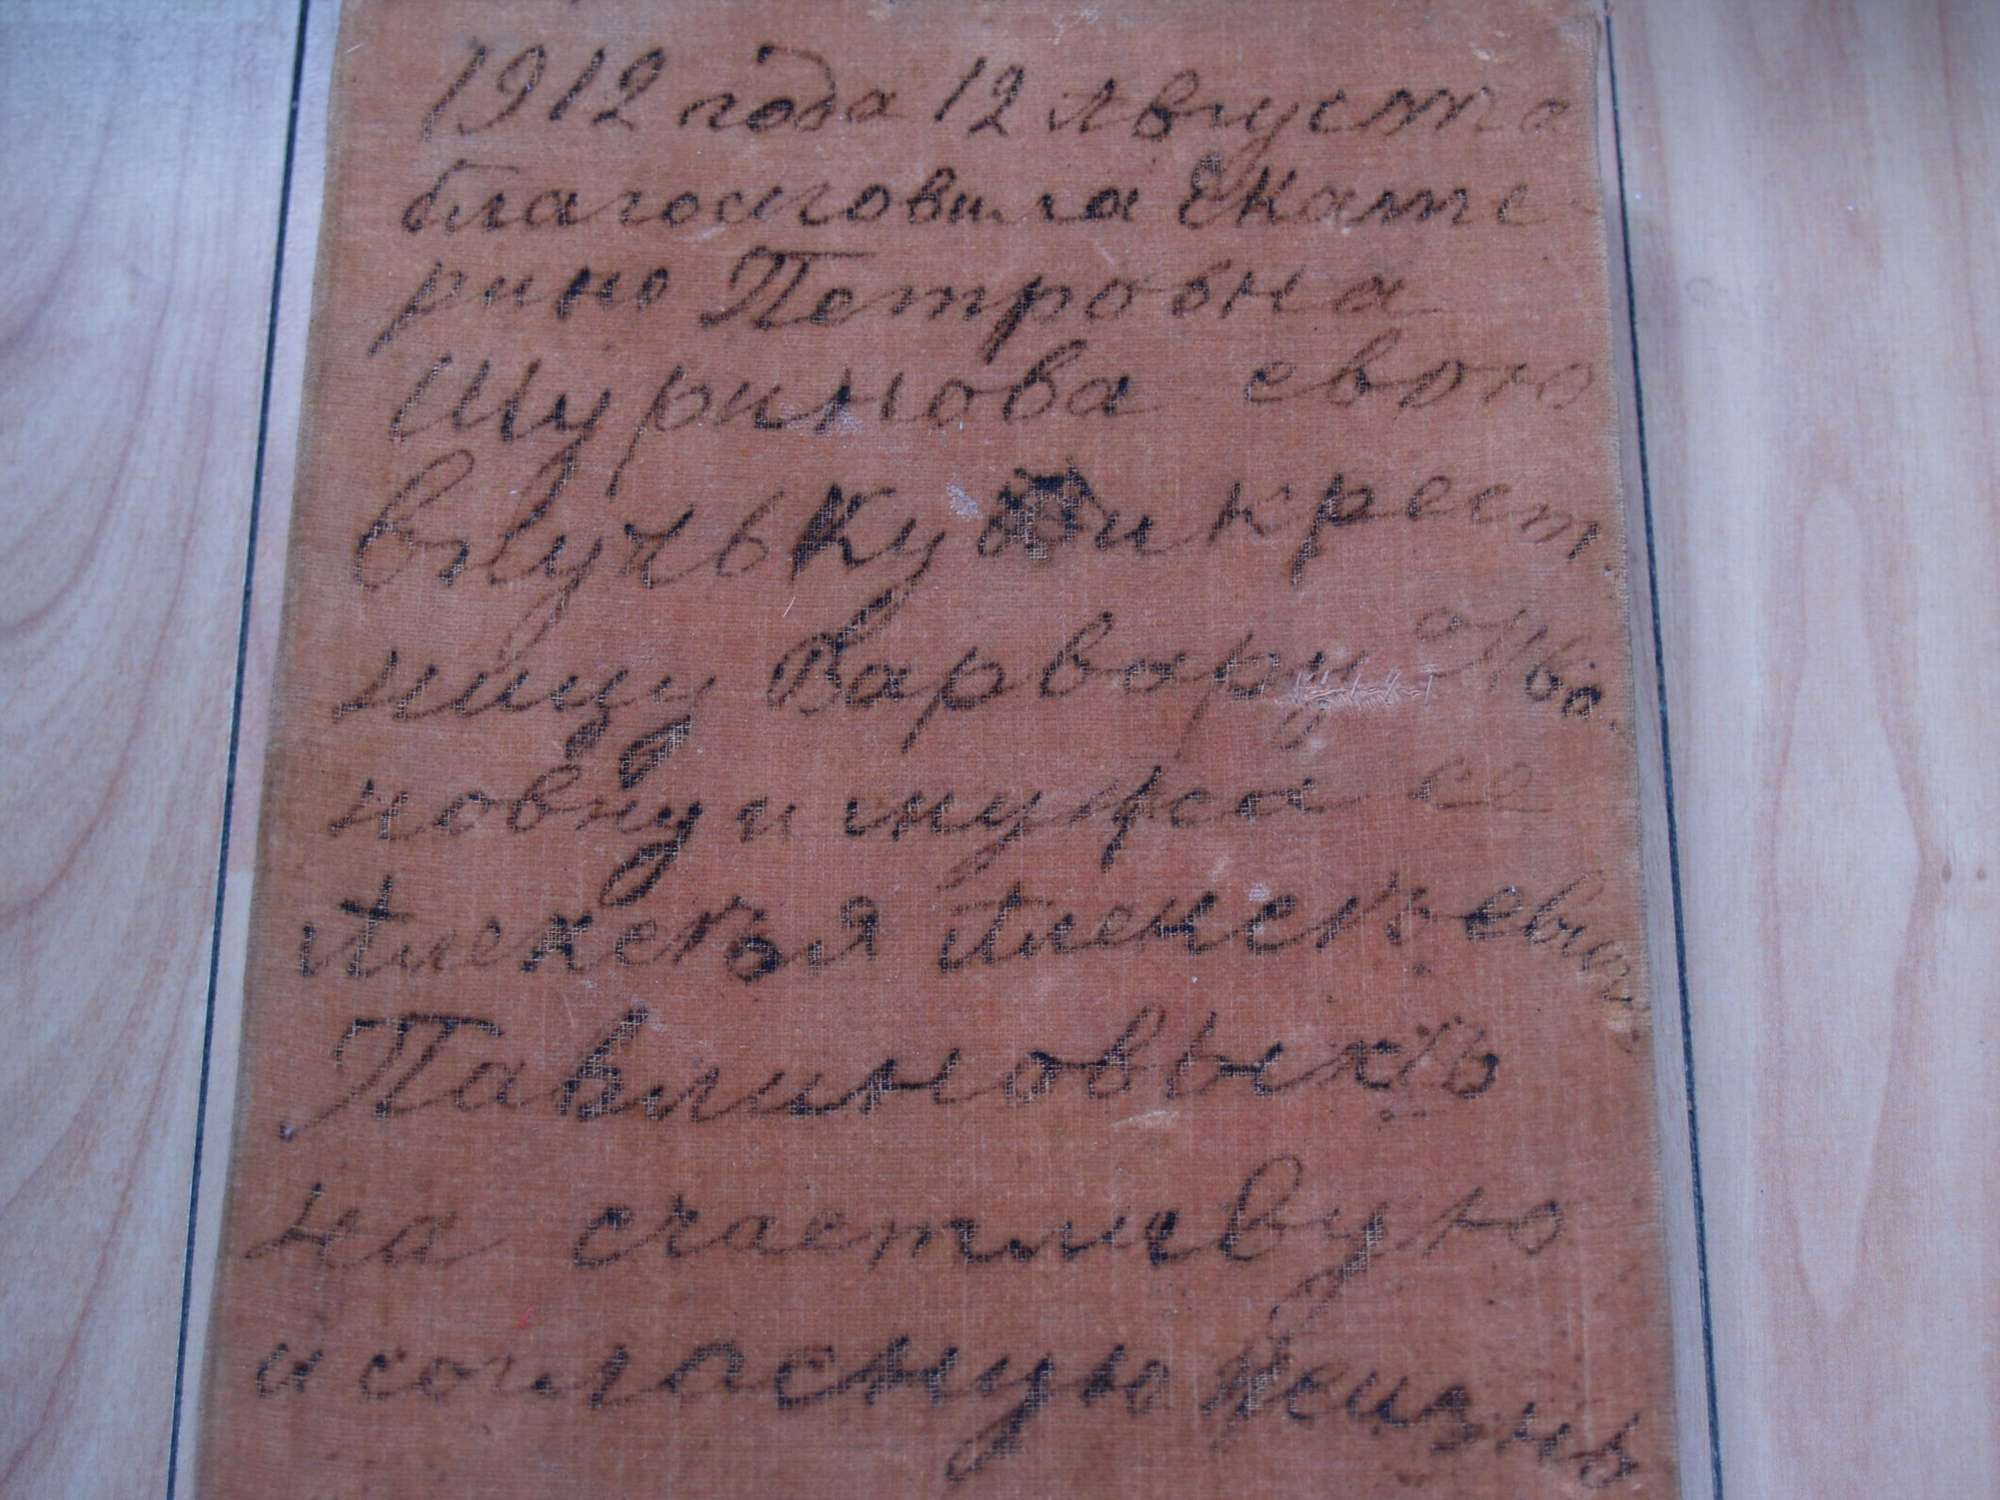 1912 года 12 Августа
благословила Екате-
рино Петровна
Шуринова свою
внучьку и крест
ницу Варвару Ива-
новну и мужа ее
Алексея Алексъевич
Павлиновыхъ
на счастливую
и согласную жизнь